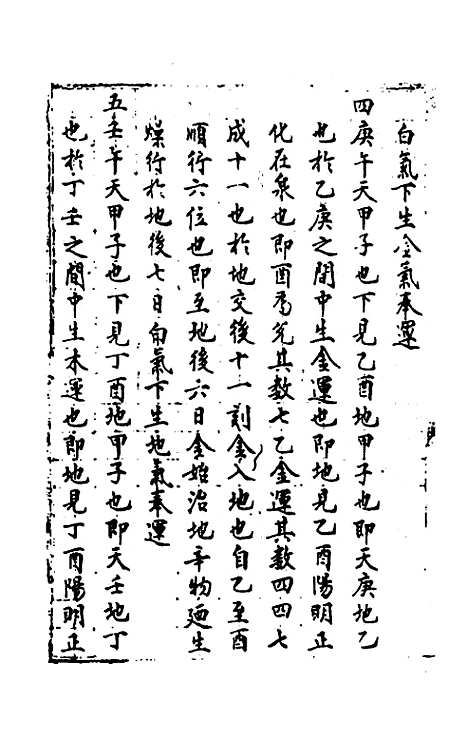 白氣下生金氣奉運
四庚午天甲子也下見乙酉地甲子也即天庚地乙
也於乙庚之間中生金運也即地見乙酉陽明正
化在泉也即酉為兌其数七乙金運其数四四七
成十一也於地交後十一刻金入地也自乙至酉
順行六位也即至地後六日金始治地辛物廼生
燥行於地後七日白氣下生地氣奉運
五壬午天甲子也下見丁酉地甲子也即天壬地丁
也於丁壬之間中生木運也即地見丁酉陽明正